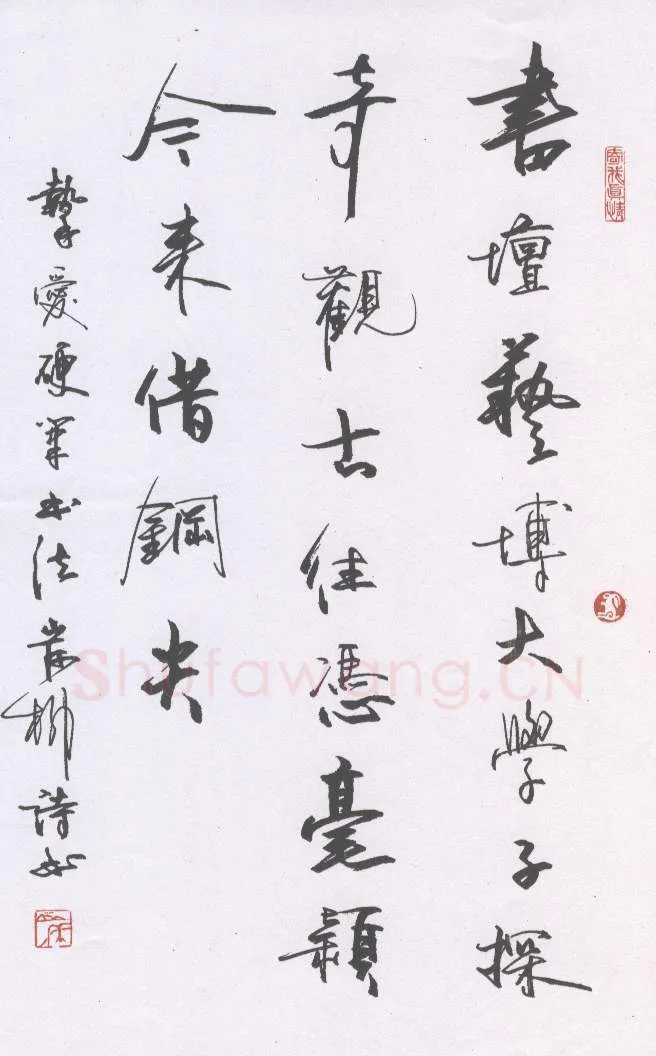 書壇藝博大學子探
奇觀古往憑毫穎
今来借鋼尖
摯愛硬筆书法柳詩书
Shufawang.CN